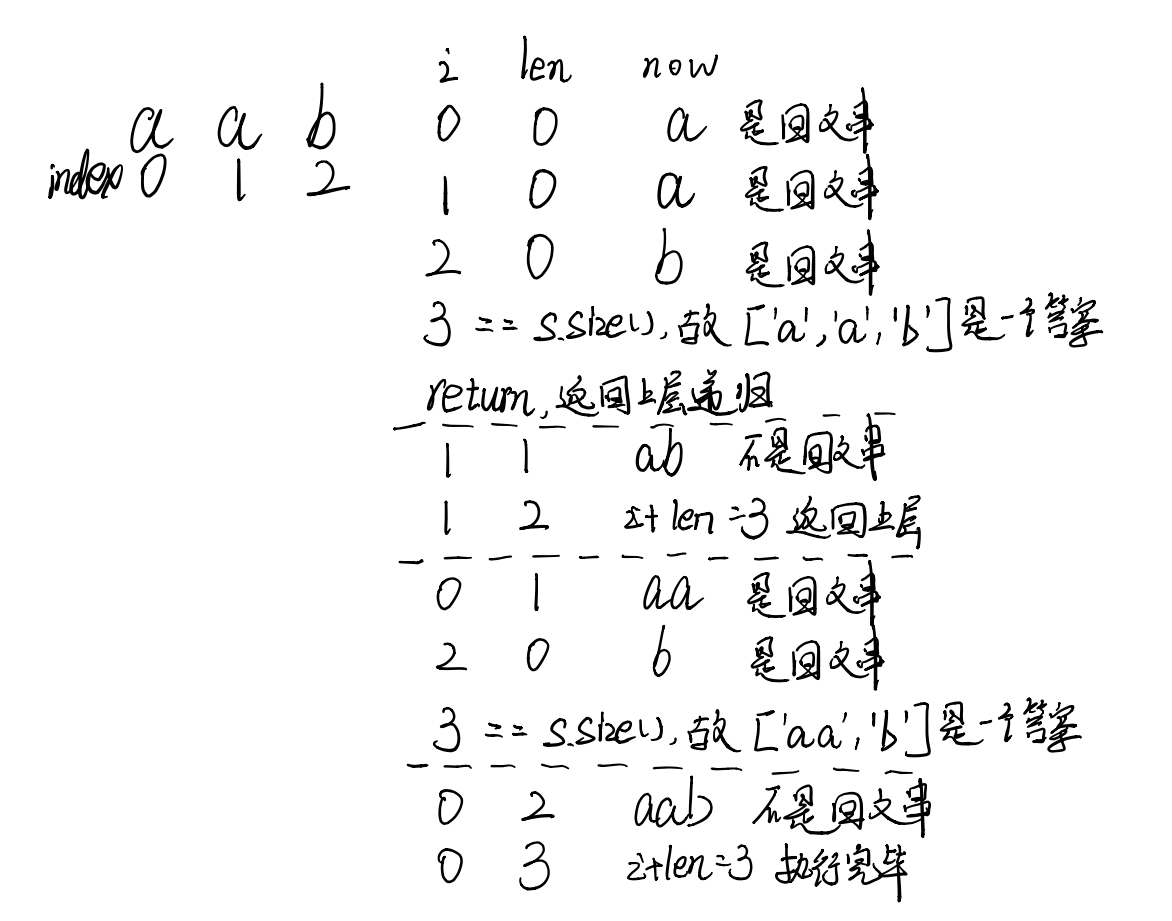 a a b
index 0 1 2
i len now
0 0 a 是回文串
1 0 a 是回文串
2 0 b 是回文串
3 == s.size(),故['a','a','b']是一个答案
return,返回上层递归
1 1 ab 不是回文串
1 2 i+len=3 返回上层
0 1 aa 是回文串
2 0 b 是回文串
3 == s.size(),故['aa','b']是一个答案
0 2 aab 不是回文串
0 3 i+len=3 执行完毕